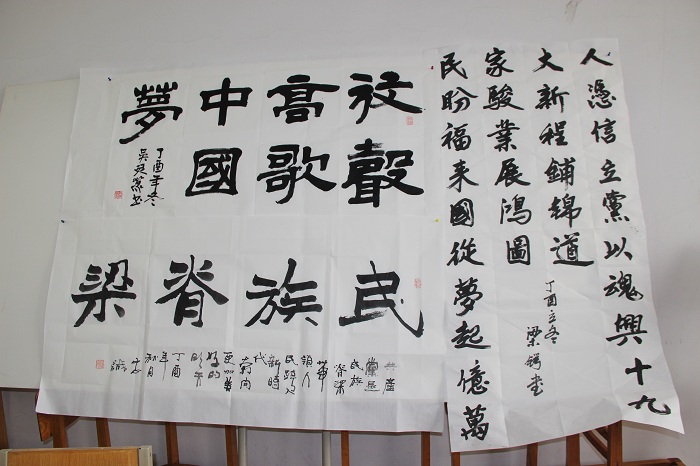 人憑信立黨以魂興十九
大新程鋪錦道
民盼福来國從夢起億萬
家駿業展鴻圖
丁酉立冬
梁
放聲
高歌
中國
夢
丁酉年冬
吳
民族脊梁
共產
黨是
民族
脊梁
領人
民跨入
新時
代
奔向
更加美
好的
明天
丁酉
年
秋月